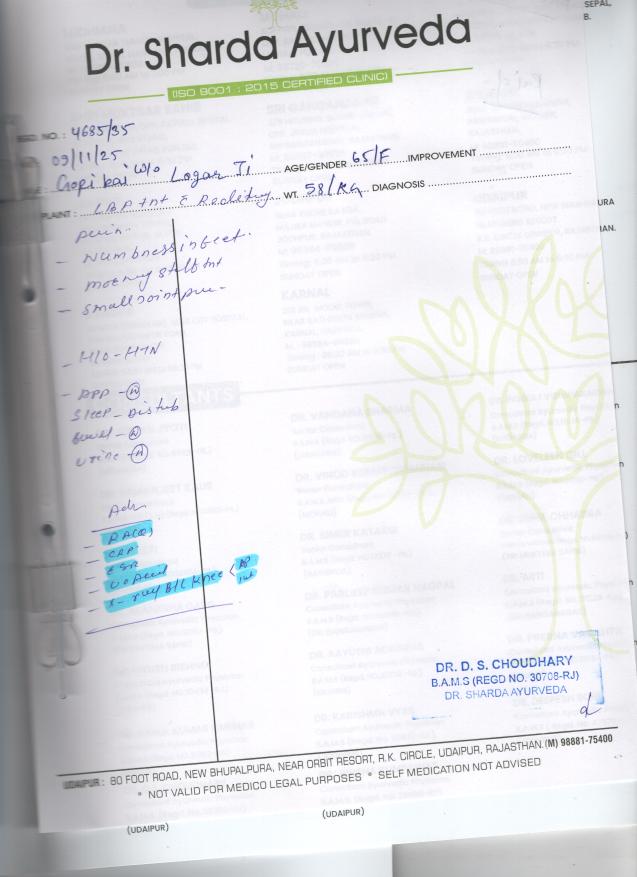 SEPAL,
B.
Dr. Sharda Ayurveda
(ISO 9001 : 2015 CERTIFIED CLINIC)
NO. : 4685/35
09/11/25
Gopi bai w/o Logar Ji AGE/GENDER 65/F IMPROVEMENT
PLAINT : LBP WT. 58/KG DIAGNOSIS
URA
pain.
AN.
- Numbness in feet.
- morning stiffness
- small joint pain
KARNAL
- H/O - HTN
- APP - (N)
Sleep - Disturb
Bowel - (N)
Urine - (N)
Adv
- RA(Q)
- CRP
- ESR
- U. Acid
- X-ray B/L Knee < AP
DR. D. S. CHOUDHARY
B.A.M.S (REGD NO. 30708-RJ)
DR. SHARDA AYURVEDA
UDAIPUR : 80 FOOT ROAD, NEW BHUPALPURA, NEAR ORBIT RESORT, R.K. CIRCLE, UDAIPUR, RAJASTHAN. (M) 98881-75400
* NOT VALID FOR MEDICO LEGAL PURPOSES * SELF MEDICATION NOT ADVISED
(UDAIPUR) (UDAIPUR)